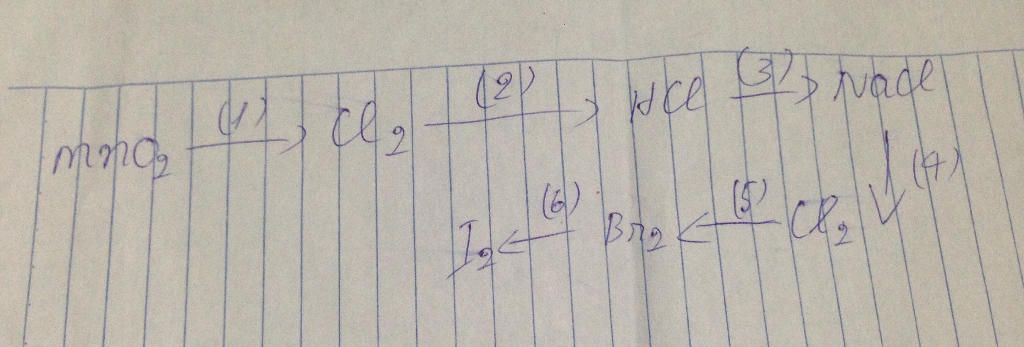 MnO2 (1)→ Cl2 (2)→ HCl (3)→ NaCl
↓ (4)
I2 ←(6) Br2 ←(5) Cl2